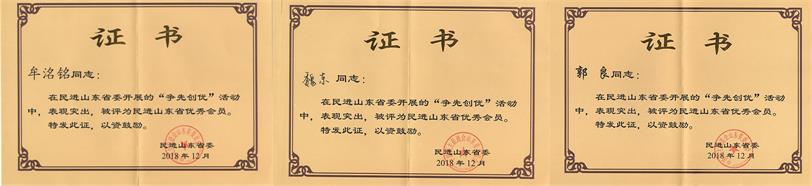 证书
牟洺铭同志：
在民进山东省委开展的“争先创优”活动
中，表现突出，被评为民进山东省优秀会员。
特发此证，以资鼓励。
民进山东省委
2018年12月
证书
东同志：
在民进山东省委开展的“争先创优”活动
中，表现突出，被评为民进山东省优秀会员。
特发此证，以资鼓励。
民进山东省委
2018年12月
证书
郭良同志：
在民进山东省委开展的“争先创优”活动
中，表现突出，被评为民进山东省优秀会员。
特发此证，以资鼓励。
民进山东省委
2018年12月